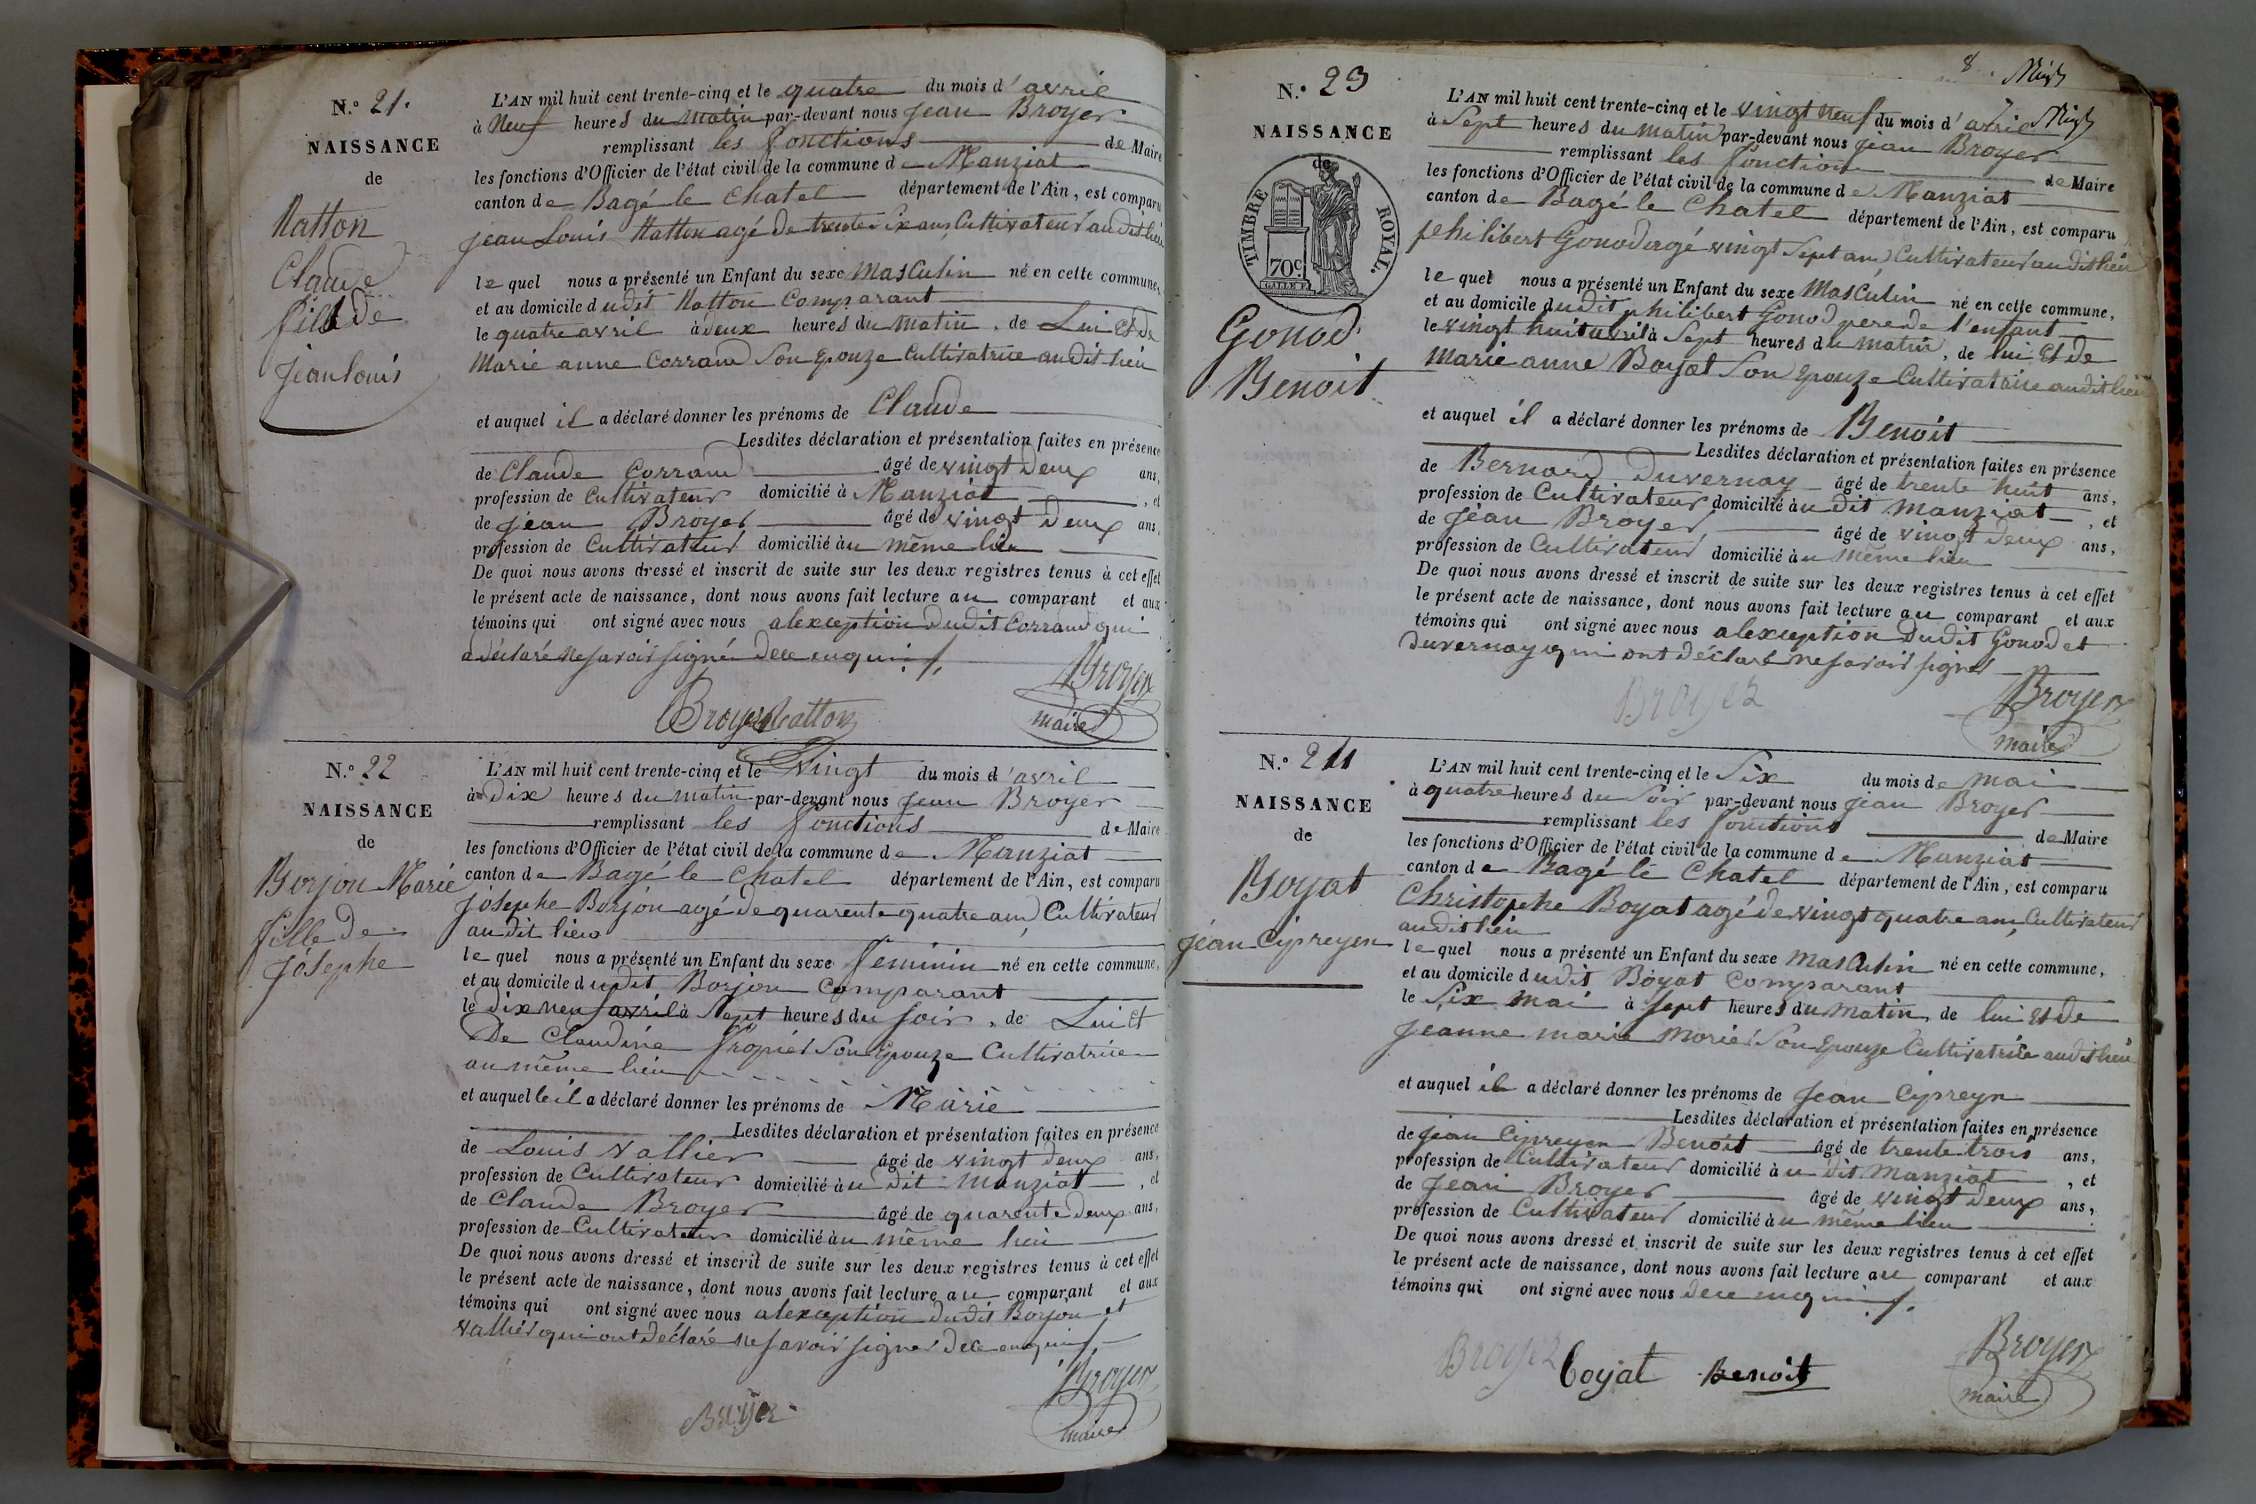 N.º 21.
NAISSANCE
de
Natton
Claude
fils de
Jean louis
L'AN mil huit cent trente-cinq et le quatre du mois d'avril
à Neuf heures du Matin par-devant nous Jean Broyer
remplissant les fonctions de Maire
les fonctions d'Officier de l'état civil de la commune de Manziat
canton de Bagé le Chatel département de l'Ain, est comparu
Jean Louis Natton agé de trente Six ans, Cultivateur audit lieu
le quel nous a présenté un Enfant du sexe Masculin né en cette commune,
et au domicile dudit Natton Comparant
le quatre avril à deux heures du Matin, de Lui Et de
Marie anne Corrand Son Epouze Cultivatrice audit lieu
et auquel il a déclaré donner les prénoms de Claude
Lesdites déclaration et présentation faites en présence
de Claude Corrand âgé de vingt deux ans,
profession de Cultivateur domicilié à Manziat, et
de Jean Broyer âgé de vingt deux ans,
profession de Cultivateur domicilié àu même lieu
De quoi nous avons dressé et inscrit de suite sur les deux registres tenus à cet effet
le présent acte de naissance, dont nous avons fait lecture au comparant et aux
témoins qui ont signé avec nous alexception dudit Corrand qui
a déclaré ne savoir signé de ce enquis
Broyer Natton
Broyer
maire
N.º 22
NAISSANCE
de
Borjon Marie
fille de
Josephe
L'AN mil huit cent trente-cinq et le Vingt du mois d'avril
à Dix heures du Matin par-devant nous Jean Broyer
remplissant les fonctions de Maire
les fonctions d'Officier de l'état civil de la commune de Manziat
canton de Bagé le Chatel département de l'Ain, est comparu
Josephe Borjon agé de quarente quatre ans, Cultivateur
audit lieu
le quel nous a présenté un Enfant du sexe feminin né en cette commune,
et au domicile dudit Borjon Comparant
le dix neuf avril à Sept heures du soir, de Lui Et
De Claudine Son Epouze Cultivatrice
au même lieu
et auquelle il a déclaré donner les prénoms de Marie
Lesdites déclaration et présentation faites en présence
de Louis Vallier âgé de vingt deux ans,
profession de Cultivateur domicilié àu dit Manziat, et
de Claude Broyer âgé de quarente deux ans,
profession de Cultivateur domicilié àu même lieu
De quoi nous avons dressé et inscrit de suite sur les deux registres tenus à cet effet
le présent acte de naissance, dont nous avons fait lecture au comparant et aux
témoins qui ont signé avec nous alexception dudit Borjon et
Vallier qui ont déclaré ne savoir signer de ce enquis
Broyer
Broyer
maire
8
N.º 23
NAISSANCE
de
TIMBRE ROYAL.
70c
Gonod
Benoit
L'AN mil huit cent trente-cinq et le vingt neuf du mois d'avril
à Sept heures du matin par-devant nous Jean Broyer
remplissant les fonction de Maire
les fonctions d'Officier de l'état civil de la commune de Manziat
canton de Bagé le Chatel département de l'Ain, est comparu
philibert Gonod agé vingt Sept ans Cultivateur audit lieu
le quel nous a présenté un Enfant du sexe Masculin né en cette commune,
et au domicile dudit philibert Gonod pere de l'enfant
le vingt huit avril à Sept heures du matin, de lui Et de
Marie anne Boyat Son Epouze Cultivatrice audit lieu
et auquel il a déclaré donner les prénoms de Benoit
Lesdites déclaration et présentation faites en présence
de Bernard Duvernay âgé de trente huit ans,
profession de Cultivateur domicilié àu dit manziat, et
de Jean Broyer âgé de vingt deux ans,
profession de Cultivateur domicilié àu même lieu
De quoi nous avons dressé et inscrit de suite sur les deux registres tenus à cet effet
le présent acte de naissance, dont nous avons fait lecture au comparant et aux
témoins qui ont signé avec nous alexception dudit Gonod et
Duvernay qui ont déclaré ne savoir signer
Broyer
Broyer
maire
N.º 24
NAISSANCE
de
Boyat
Jean Cipreyen
L'AN mil huit cent trente-cinq et le Six du mois de mai
à quatre heures du Soir par-devant nous Jean Broyer
remplissant les fonctions de Maire
les fonctions d'Officier de l'état civil de la commune de Manziat
canton de Bagé le Chatel département de l'Ain, est comparu
Christophe Boyat agé de vingt quatre ans, Cultivateur
audit lieu
le quel nous a présenté un Enfant du sexe masculin né en cette commune,
et au domicile dudit Boyat Comparant
le Six mai à sept heures du matin, de lui Et de
Jeanne marie Morier Son Epouze Cultivatrice audit lieu
et auquel il a déclaré donner les prénoms de Jean Cipreyn
Lesdites déclaration et présentation faites en présence
de Jean Cipreyen Benoit âgé de trente trois ans,
profession de Cultivateur domicilié àu dit Manziat, et
de Jean Broyer âgé de vingt deux ans,
profession de Cultivateur domicilié àu même lieu
De quoi nous avons dressé et inscrit de suite sur les deux registres tenus à cet effet
le présent acte de naissance, dont nous avons fait lecture au comparant et aux
témoins qui ont signé avec nous de ce enquis
Broyer boyat Benoit
Broyer
maire